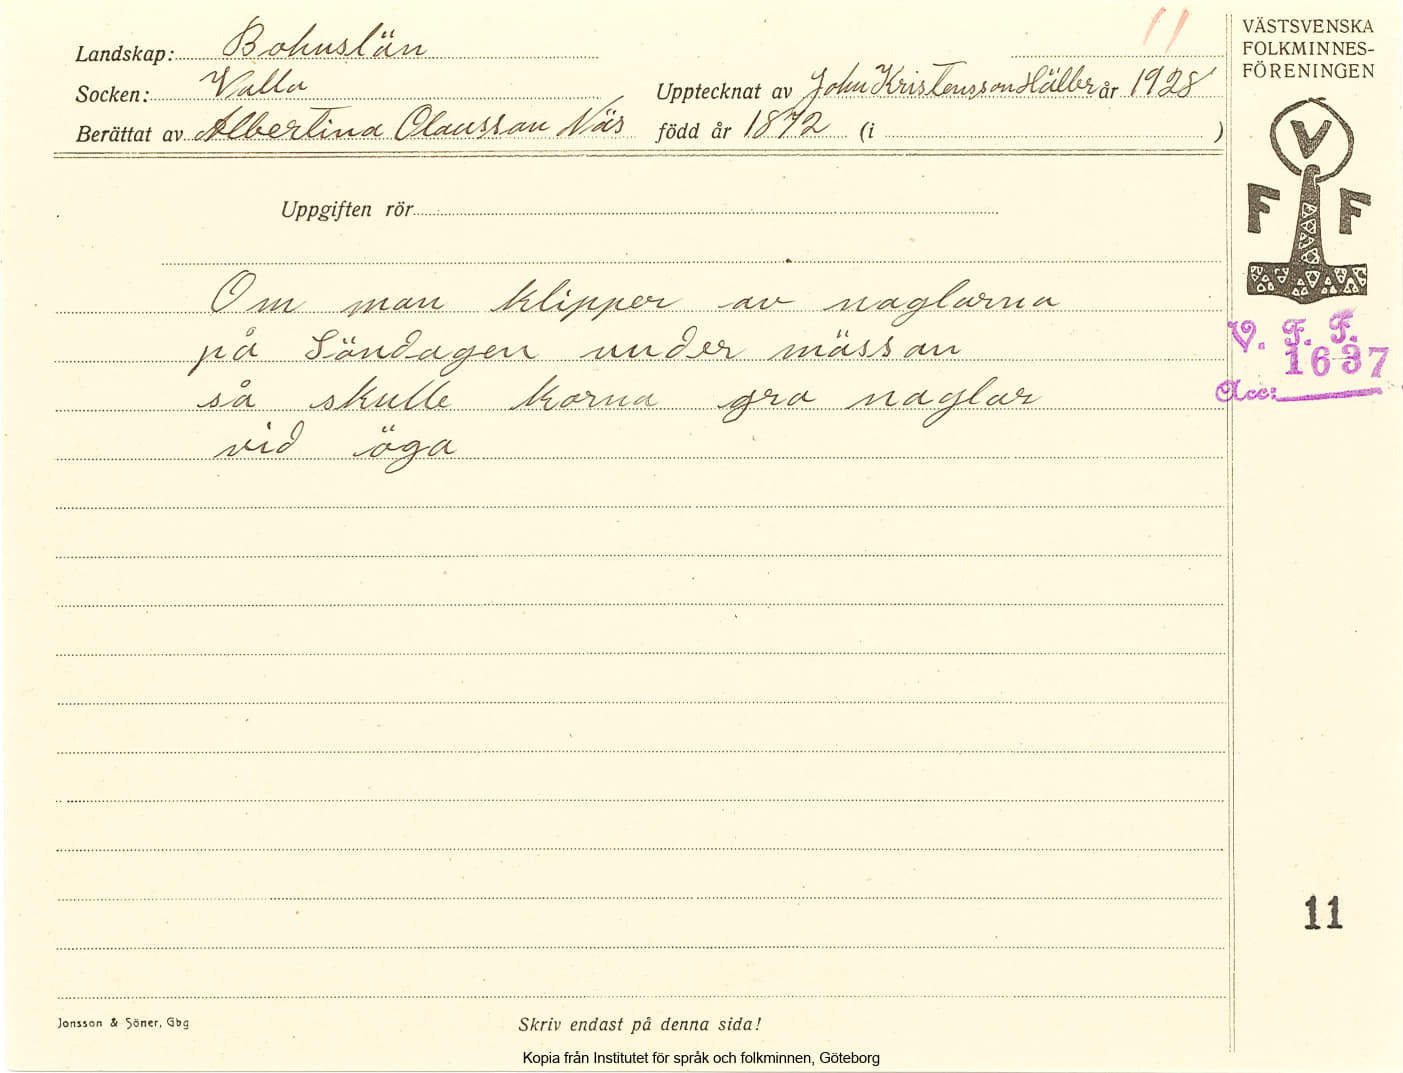 11
VÄSTSVENSKA
FOLKMINNES-
FÖRENINGEN
Landskap: Bohuslän
Socken: Valla
Upptecknat av John Kristensson Hälbr år 1928
Berättat av Albertina Olaussan Näs
född år 1872 (i )
V
F F
Uppgiften rör
Om man klipper av naglarna
på Söndagen under mässan
så skulle korna gro naglar
vid öga
V. F. F.
1637
Acc:
11
Jonsson & Söner, Gbg
Skriv endast på denna sida!
Kopia från Institutet för språk och folkminnen, Göteborg